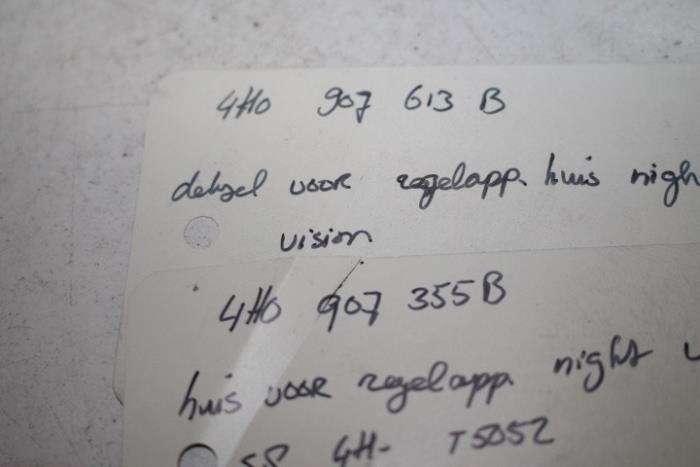 4H0 907 613 B
deksel voor regelapp. huis nigh
vision
4H0 907 355 B
huis voor regelapp. night
4H- T5052